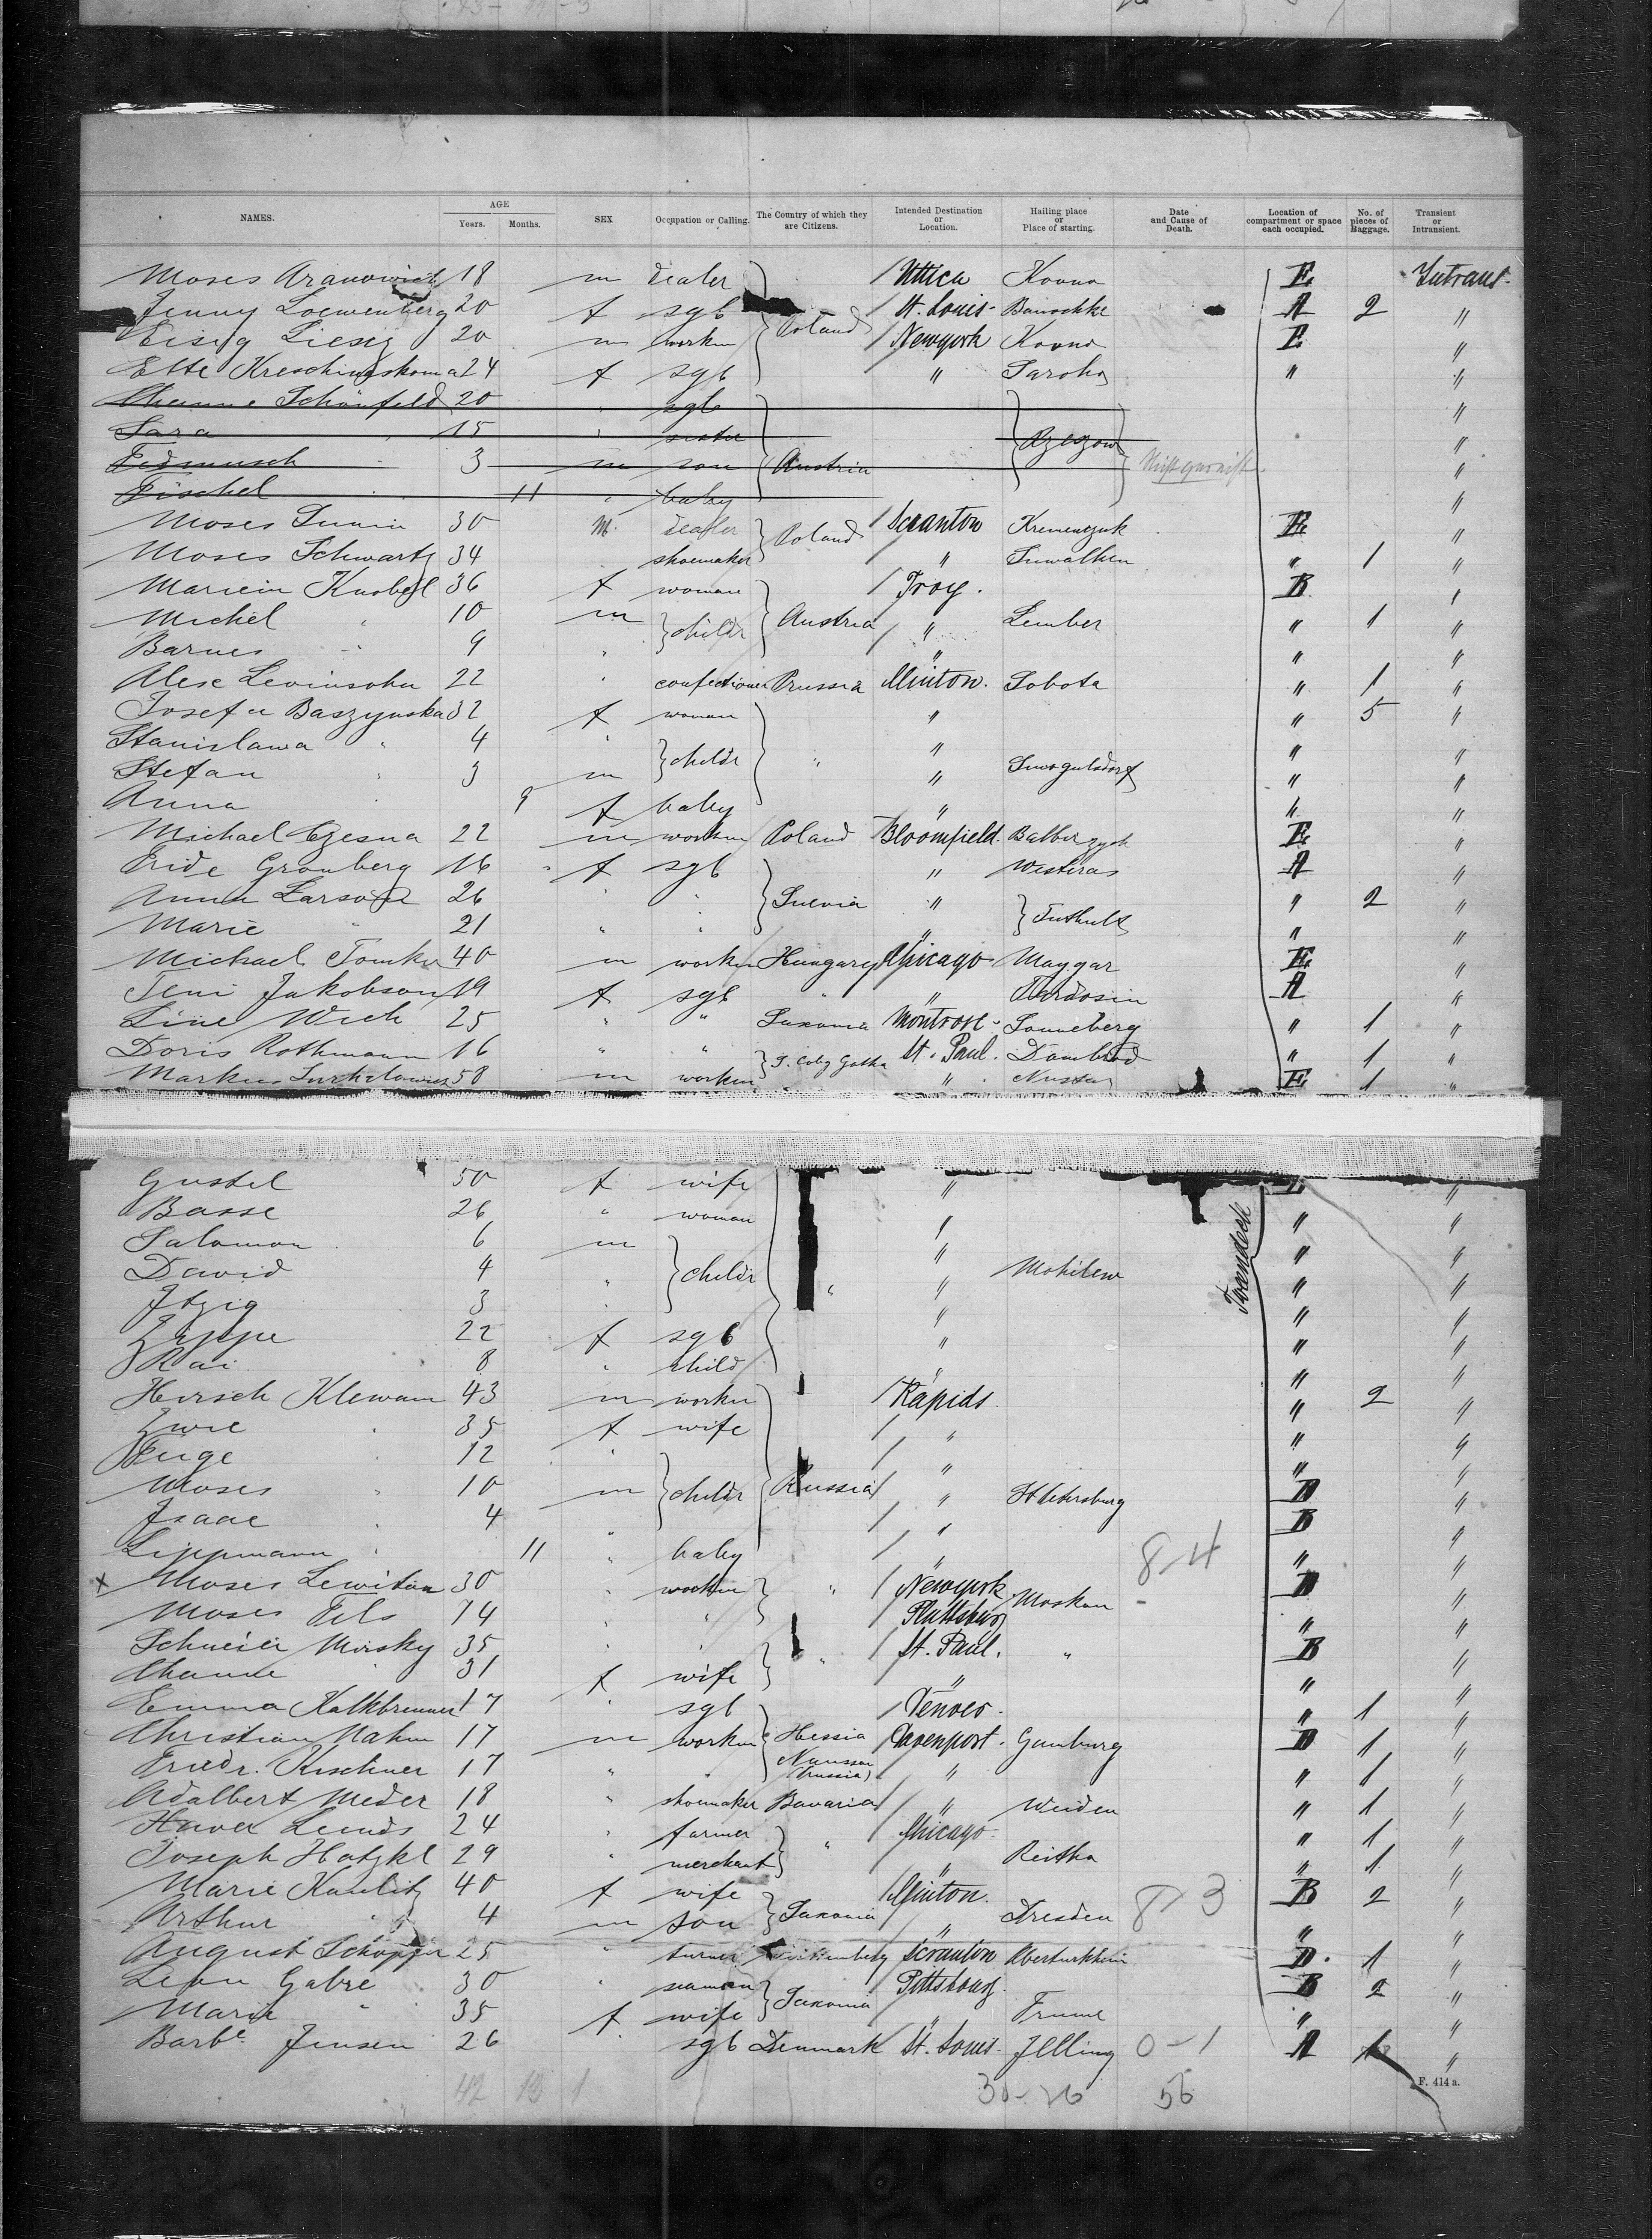 NAMES. AGE Years. Months. SEX Occupation or Calling. The Country of which they are Citizens. Intended Destination or Location. Hailing place or Place of starting. Date and Cause of Death. Location of compartment or space each occupied. No. of pieces of Baggage. Transient or Intransient.
Moses Aranowich 18 m dealer Uttica Kovno E Intrans.
Jenny Loewenberg 20 f sgl St. Louis Bauschke A 2 "
Eisig Liesig 20 m workm Poland Newyork Kovno E "
Ette 24 f sgl " " "
Channe Schönfeld 20 " sgl "
Sara 15 " sister Rzezow "
3 m son Austria "
Fischel 11 " baby "
Moses 30 M. dealer Poland Scranton Kremenzuk E "
Moses Schwartz 34 shoemaker " Suwalken " 1 "
Mariem Knobel 36 f woman Troy. B "
Michel " 10 m childr Austria " Lember " 1 "
Barnes " 9 " " " "
Alex Levinsohn 22 " confectioner Prussia Clinton. Sobota " 1 "
Josefa Baszynska 32 f woman " " 5 "
Stanislawa " 4 " childr " " " "
Stefan " 3 m " " "
Anna 9 f baby " " "
Michael Czesna 22 m workm Poland Bloomfield. E "
Gronberg 16 f sgl " Westeras A "
Anna Larson 26 " " Suevia " " 2 "
Marie " 21 " " " "
Michael 40 m workm Hungary Chicago Maggar E "
Jakobson 19 f sgl " " A "
Line Wich 25 " " Saxonia Montrose Sonneberg " 1 "
Doris Rothmann 16 " " St. Paul. " 1 "
Markus 58 m workm " " E 1 "
Gustel 50 f wife " E "
Basse 26 " woman " " "
Salomon 6 m " " "
David 4 " childr " " Mohilew " "
Itzig 3 " " " "
22 f sgl " " "
8 " child " " "
Hirsch Klewan 43 m workm Rapids " 2 "
35 f wife " " "
12 " " " "
Moses " 10 m childr Russia " St Petersburg D "
Isaac " 4 " B "
Lippmann " 11 " baby " " "
x Moses Lewitan 30 " workm " Newyork Moskau D "
Moses Fels 14 " " Plattsburg " "
Mirsky 35 " " " St. Paul. " B "
Channe " 31 f wife " " "
Emma Kalkbrenner 17 " sgl Denver " 1 "
Christian Nahm 17 m workm Hessia Davenport. Gamburg D 1 "
Friedr. Kirchner 17 " " Nassau (Prussia) " " 1 "
Adalbert Meder 18 " shoemaker Bavaria " Weiden " 1 "
24 " farmer " Chicago " 1 "
Joseph Hatzkl 29 " merchant " " 1 "
Marie Kaulitz 40 f wife Clinton. B 2 "
Arthur " 4 m son Saxonia " Dresden " "
August Schöpfer 25 " turner Württemberg Scranton Oberturkheim D. 1 "
Leon Gabre 30 " seaman Saxonia Pittsbourg B 2 "
Marie " 35 f wife " " "
Barbe Jensen 26 " sgl Denmark St. Louis Jelling 0-1 A 1 "
Tweendeck
8-4
8-3
42 13 1 30-26 56
F. 414 a.